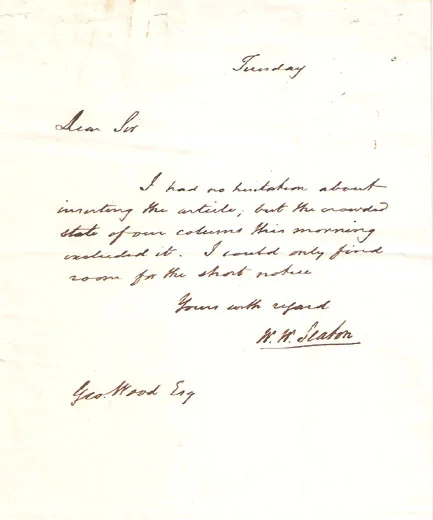 Tuesday
Dear Sir
I had no hesitation about
inserting the article, but the crowded
state of our columns this morning
excluded it. I could only find
room for the short notice
Yours with regard
W. W. Seaton
Geo. Wood Esq